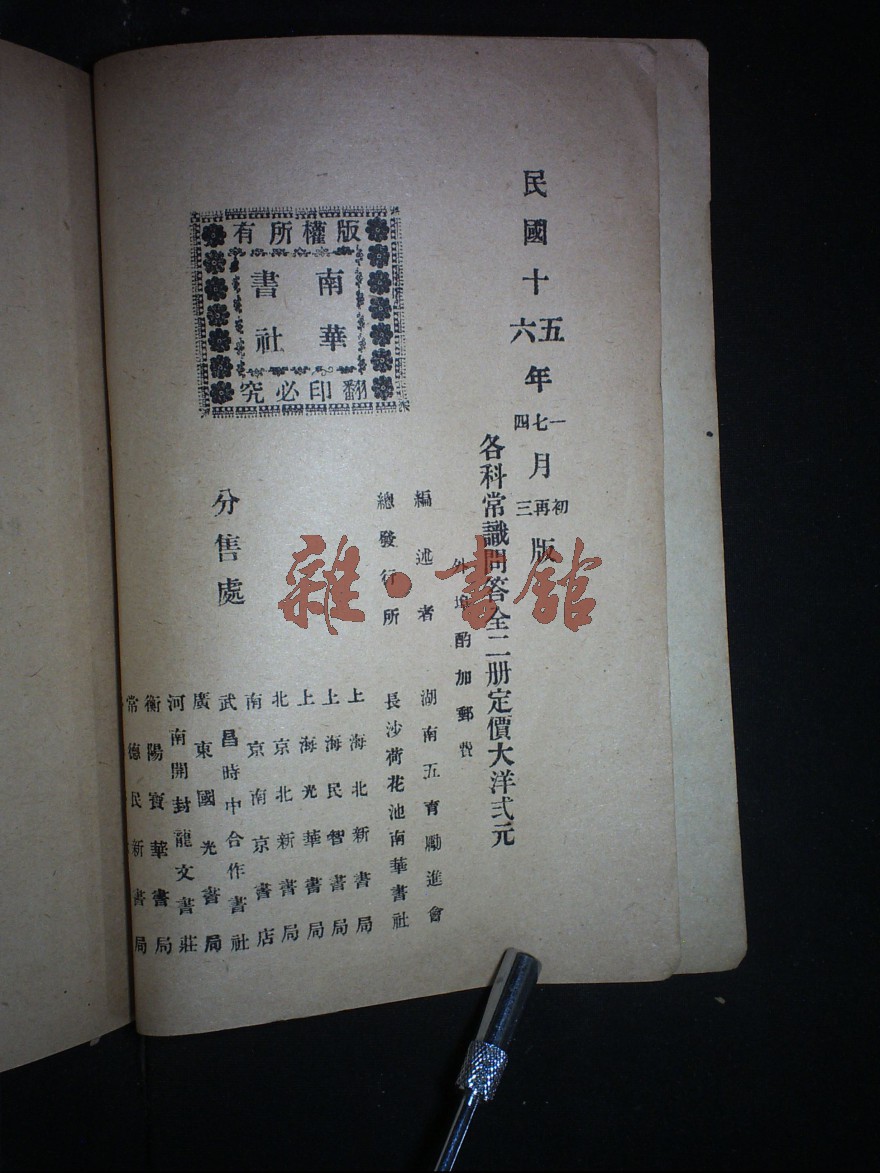 民國十五六年一七四月初再三版
各科常識問答全二册定價大洋弍元
外埠酌加郵費
編述者 湖南五育勵進會
總發行所 長沙荷花池南華書社
分售處
上海北新書局
上海民智書局
上海光華書局
北京北新書局
南京南京書店
武昌時中合作書社
廣東國光書局
河南開封龍文書莊
衡陽寶華書局
常德民新書局
版權所有
南華書社
翻印必究
雜·書館